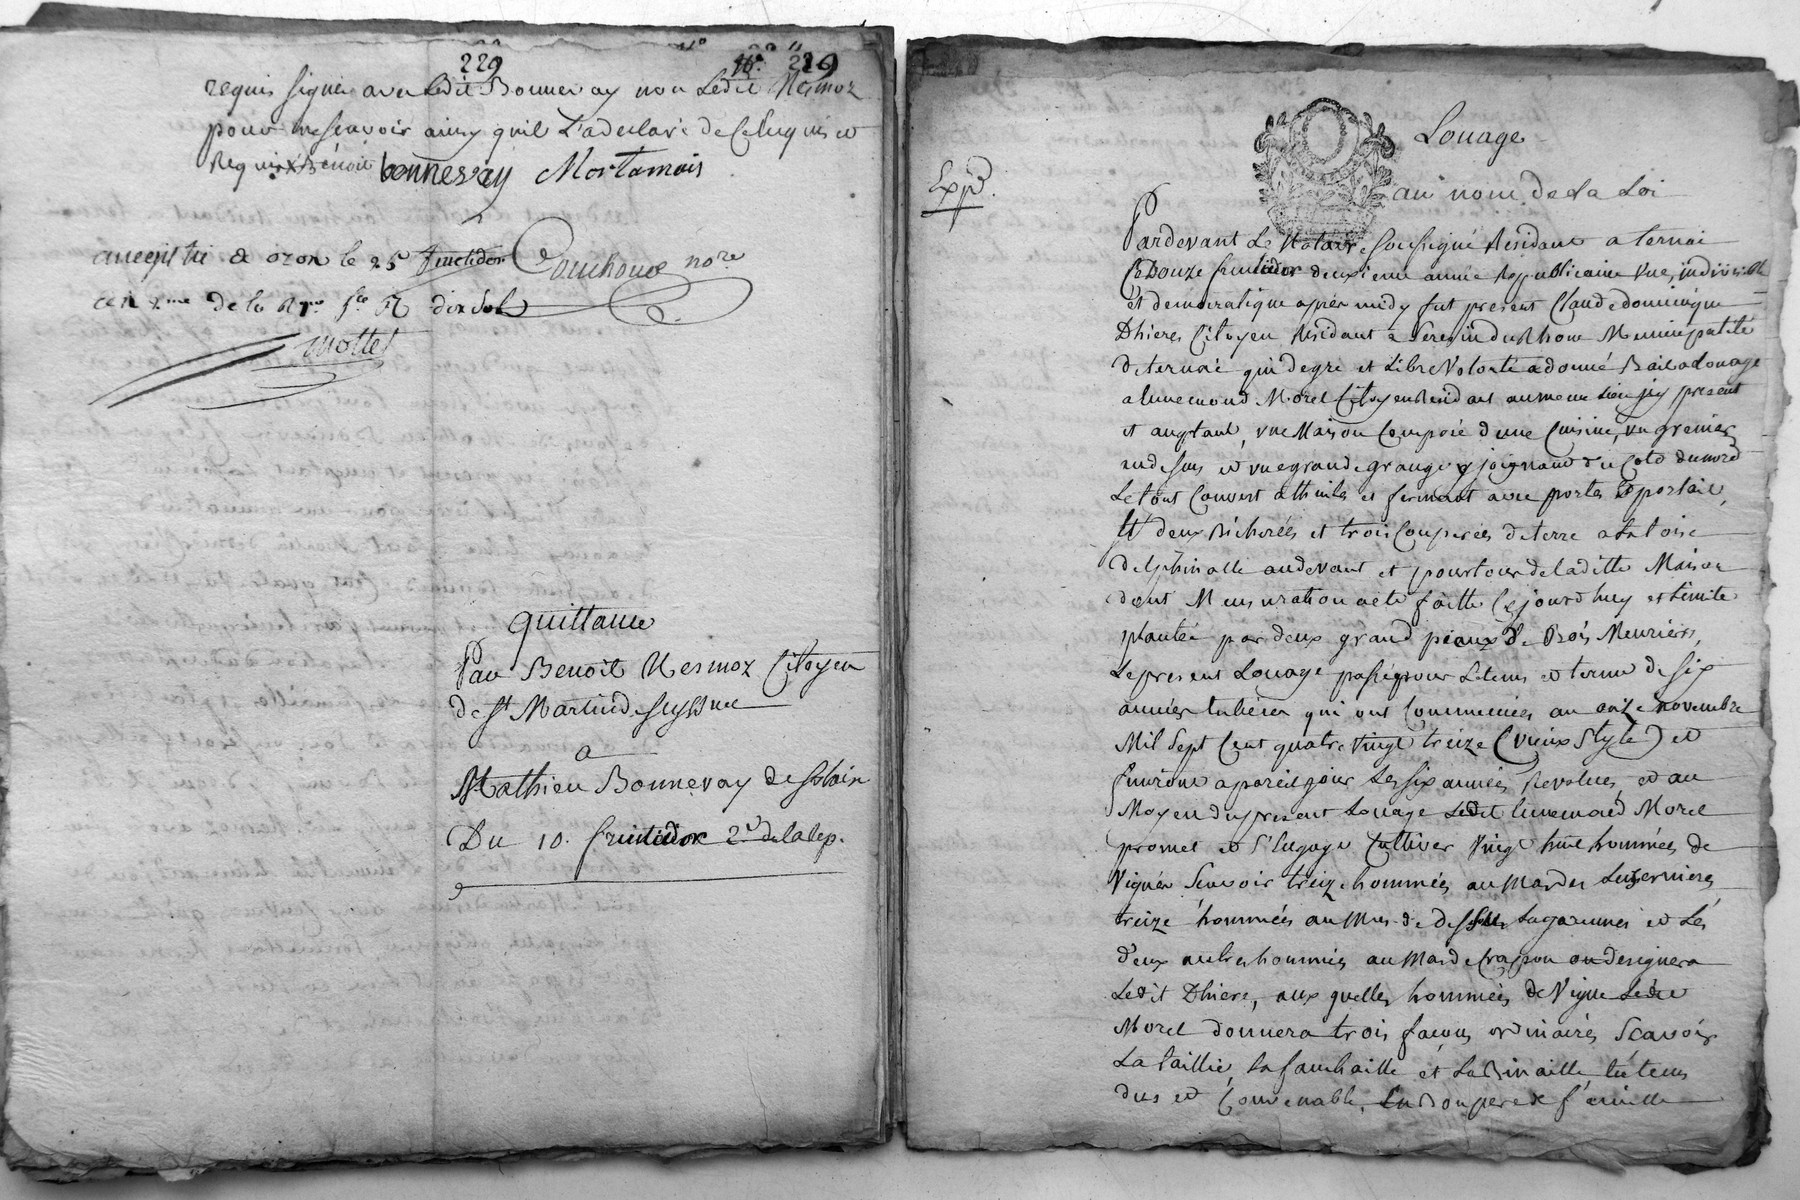 229
229
requis signer avec ledit Bonnevay non ledit Nesmoz
pour ne scavoir ainsy quil l'a declaré de ce enquis et
Requis Benoit bonnevay Mortamais
anregistré a ozon le 25 fructidor
an 2me de la R
mottet
nore
quittance
Par Benoit Nesmoz Citoyen
de St Martin de
a
Mathieu Bonnevay de
Du 10. fructidor 2e de la Rep.
Expd.
Louage
au nom de la Loi
Pardevant Le Notaire soussigné Résidant a ternai
Ce Douze fructidor deuxieme année republicaine une, indivisible
et democratique après midy fut present Claude dominique
Dhieres Citoyen Residant a Seresin du Rhone Municipalité
de ternai qui de gré et Libre Volonté a donné Bail a Louage
a Ennemond Morel Citoyen Residant au meme Lieu icy present
et aceptant, une Maison Composée d'une Cuisine, un grenier
au dessus et une grande grange y joignant du Coté du nord
Le tout Couvert a thuiles et fermant avec portes et portail,
Et deux Bicherées et trois Couperées de terre a la toise
delphinalle au devant et pourtour de la ditte Maison
dont Mensuration a été faitte Cejourd'huy et Limite
plantée par deux grand pieux de Bois Meuriers,
Le present Louage passé pour Le tems et terme de six
années entieres qui ont Commencées au onze novembre
Mil Sept Cent quatre Vingt treize (vieux Style) et
finiront a pareil jour Les six années Revolues, et au
Moyen du present Louage Ledit Ennemond Morel
promet et S'Engage Cultiver Vingt huit hommées de
Vignes Scavoir treize hommées au Mas des Luzernieres
treize hommées au Mas de dessus Lagarennes et Les
deux autres hommées au Mas de Crapon ou designera
Ledit Dhiere, aux quelles hommées de Vigne Ledit
Morel donnera trois façons ordinaires Scavoir
La taillie, la fauchaille et La Binaille, En tems
dus et Convenable, En Bon pere de famille